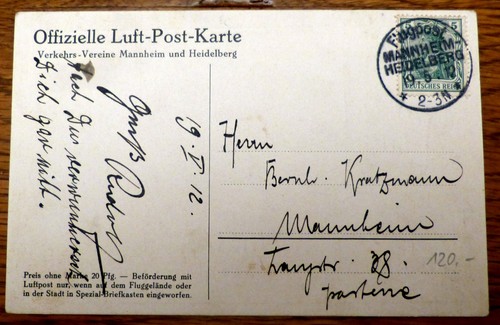 Offizielle Luft-Post-Karte
Verkehrs-Vereine Mannheim und Heidelberg
5
Flugpost
MANNHEIM-
HEIDELBERG
19. 5.
* 2-3N *
DEUTSCHES REICH
19. V. 12.
Gruß Rudolf
Dich gar nit.
Herrn
Bernh. Kratzmann
Mannheim
Langstr. 28
parterre
120.-
Preis ohne Marke 20 Pfg. — Beförderung mit
Luftpost nur, wenn auf dem Fluggelände oder
in der Stadt in Spezial-Briefkasten eingeworfen.